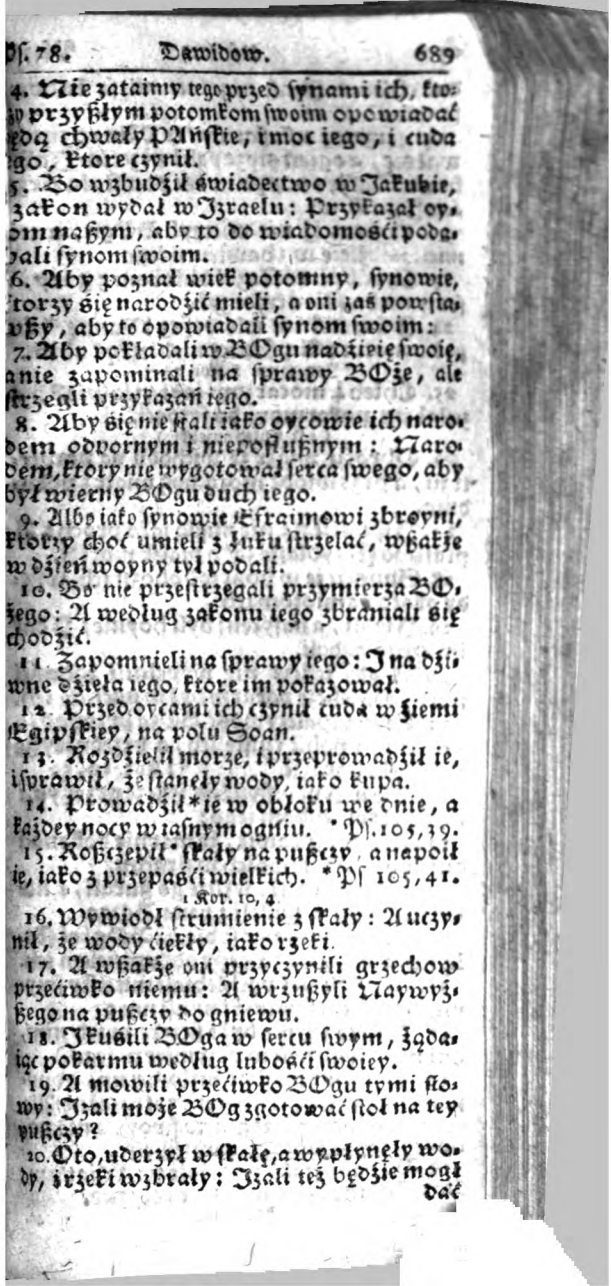 Ps. 78. Dawidow. 689
4. Nie zataimy tego przed synami ich, kto-
zy przyßłym potomkom swoim opowiadać
ędą chwały PAńskie, i moc iego, i cuda
ego, ktore czynił.
5. Bo wzbudźił świadectwo w Jakubie,
zakon wydał w Jzraelu: Przykazał oy-
om naßym, aby to do wiadomośći poda-
ali synom swoim.
6. Aby poznał wiek potomny, synowie,
ktorzy się narodźić mieli, a oni zaś powsta-
wßy, aby to opowiadali synom swoim:
7. Aby pokładali w BOgu nadźieię swoię,
a nie zapominali na sprawy BOże, ale
strzegli przykazań iego.
8. Aby się nie stali iako oycowie ich naro-
dem odpornym i nieposłußnym: Naro-
dem, ktory nie wygotował serca swego, aby
był wierny BOgu duch iego.
9. Albo iako synowie Efraimowi zbroyni,
ktorzy choć umieli z łuku strzelać, wßakże
w dźień woyny tył podali.
10. Bo nie przestrzegali przymierza BO-
żego: A według zakonu iego zbraniali się
chodźić.
11. Zapomnieli na sprawy iego: J na dźi-
wne dźieła iego, ktore im pokazował.
12. Przed oycami ich czynił cuda w źiemi
Egipskiey, na polu Soan.
13. Rozdźielił morze, i przeprowadźił ie,
i sprawił, że stanęły wody, iako kupa.
14. Prowadźił *ie w obłoku we dnie, a
każdey nocy w iasnym ogniu. *Ps. 105, 39.
15. Roßczepił *skały na pußczy, a napoił
ie, iako z przepaśći wielkich. *Ps 105, 41.
1 Kor. 10, 4
16. Wywiodł strumienie z skały: A uczy-
nił, że wody ćiekły, iako rzeki.
17. A wßakże oni przyczynili grzechow
przećiwko niemu: A wzrußyli Naywyż-
ßego na pußczy do gniewu.
18. J kuśili BOga w sercu swym, żąda-
iąc pokarmu według lubośći swoiey.
19. A mowili przećiwko BOgu tymi sło-
wy: Jzali może BOg zgotować stoł na tey
pußczy?
20. Oto, uderzył w skałę, a wypłynęły wo-
dy, i rzeki wzbrały: Jzali też będźie mogł
dać